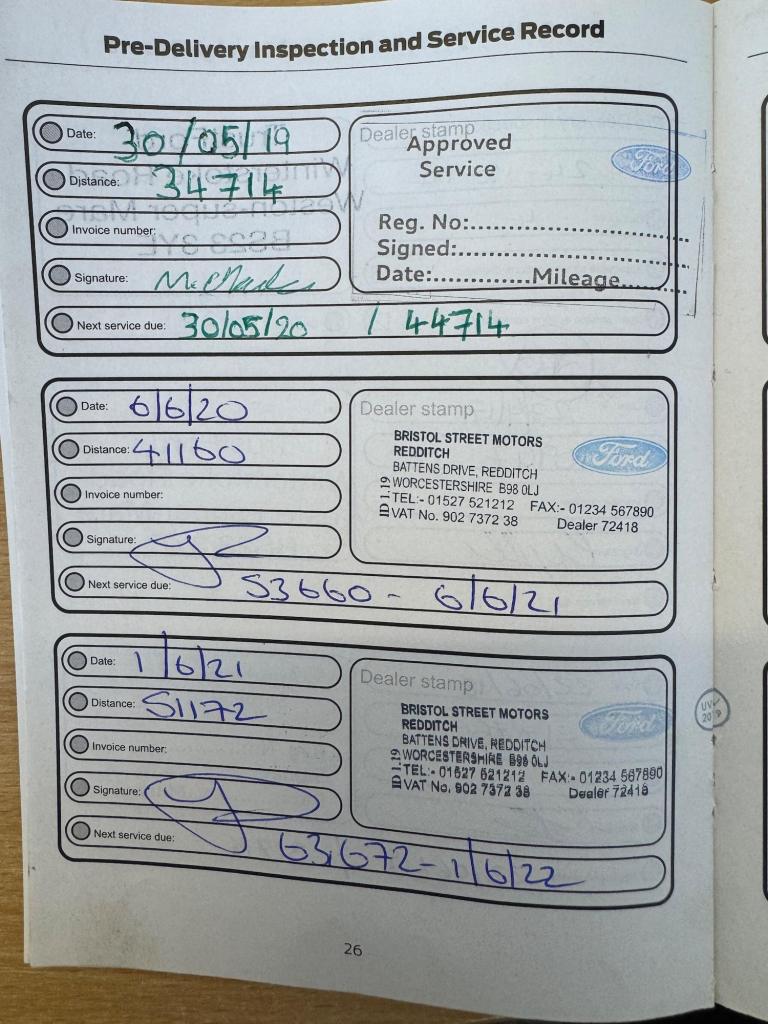 Pre-Delivery Inspection and Service Record
Date: 30/05/19
Distance: 34714
Invoice number:
Signature:
Next service due: 30/05/20 / 44714
Dealer stamp
Approved
Service
Ford
Reg. No:
Signed:
Date: Mileage
Winterstoke Road
Weston-super-Mare
BS23 3YL
Date: 6/6/20
Distance: 41160
Invoice number:
Signature:
Next service due: 53660 - 6/6/21
Dealer stamp
BRISTOL STREET MOTORS
REDDITCH
BATTENS DRIVE, REDDITCH
WORCESTERSHIRE B98 0LJ
TEL:- 01527 521212 FAX:- 01234 567890
VAT No. 902 7372 38 Dealer 72418
ID 1.19
Ford
Date: 1/6/21
Distance: 51172
Invoice number:
Signature:
Next service due: 63,672 - 1/6/22
Dealer stamp
BRISTOL STREET MOTORS
REDDITCH
BATTENS DRIVE, REDDITCH
WORCESTERSHIRE B98 0LJ
TEL:- 01527 521212 FAX:- 01234 567890
VAT No. 902 7372 38 Dealer 72418
ID 1.19
Ford
26